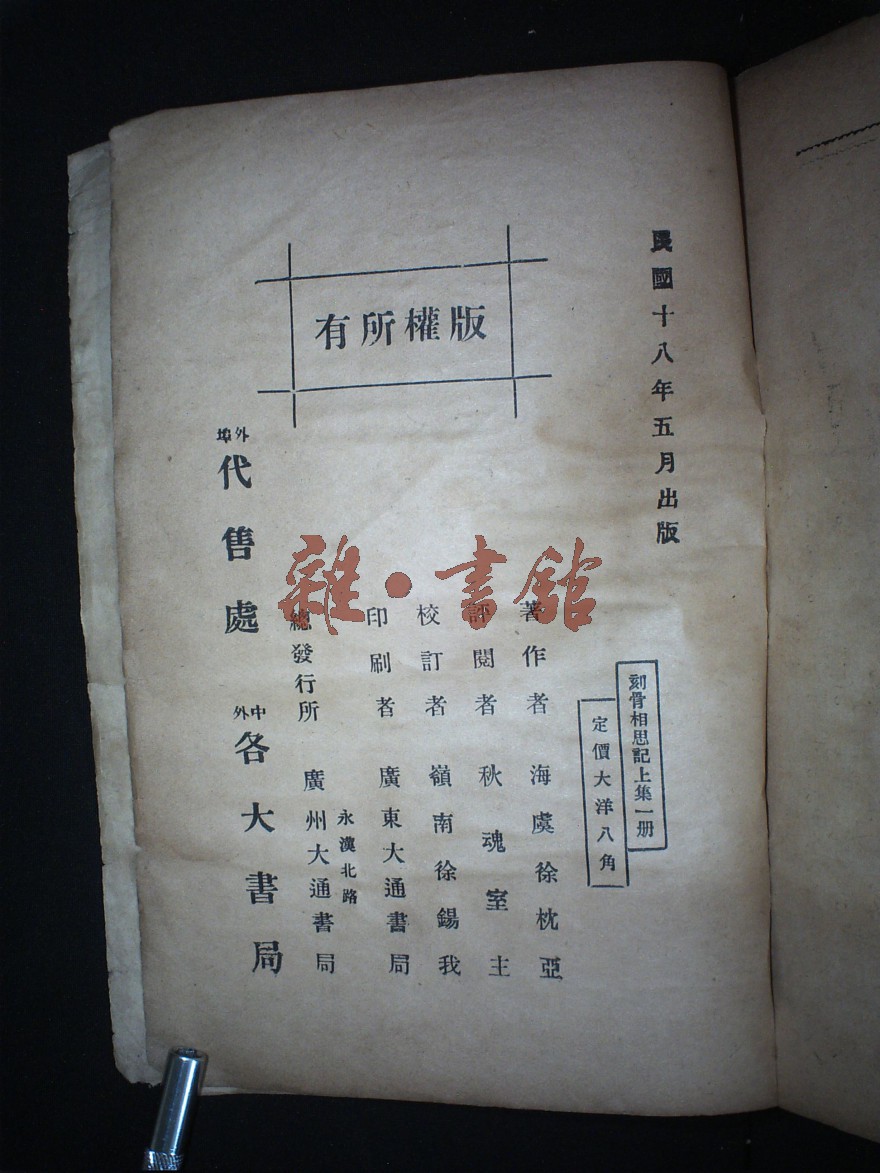 民國十八年五月出版
刻骨相思記上集一册
定價大洋八角
版權所有
著作者 海虞徐枕亞
評閱者 秋魂室主
校訂者 嶺南徐錫我
印刷者 廣東大通書局
永漢北路
總發行所 廣州大通書局
外埠代售處 中外各大書局
雜·書館